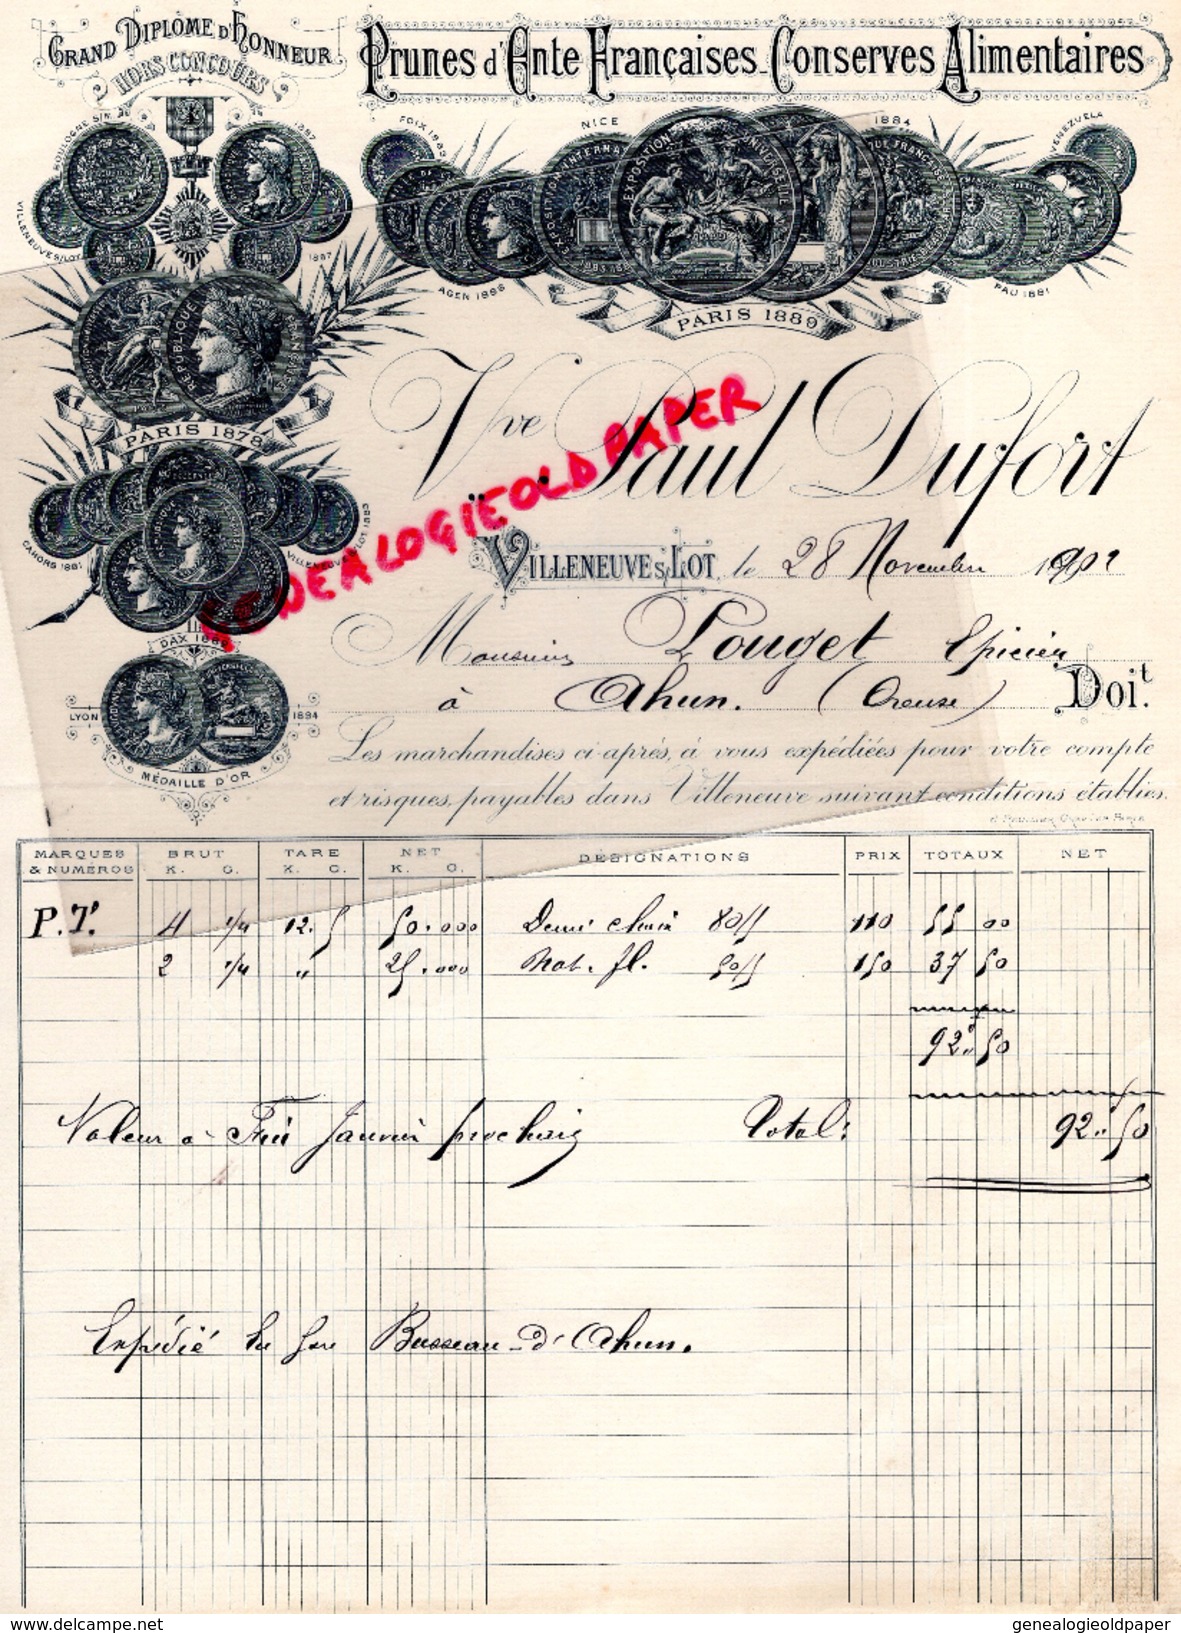 GRAND DIPLÔME D'HONNEUR
HORS CONCOURS
Prunes d'Ente Françaises_Conserves Alimentaires
BOULOGNE S/M
1887
VILLENEUVE S/LOT
1887
FOIX 1883
NICE
1884
VENEZUELA
EXPOSITION UNIVERSELLE
AGEN 1886
PAU 1881
PARIS 1889
REPUBLIQUE FRANÇAISE
PARIS 1878
CAHORS 1881
VILLENEUVE S/LOT 1883
DAX 1889
LYON
1894
MÉDAILLE D'OR
Vve Paul Dufort
GENEALOGIEOLDPAPER
VILLENEUVE S/LOT, le 28 Novembre 1902
Monsieur Pouget Epicier
à Ahun. (Creuse) Doit.
Les marchandises ci-après, à vous expédiées pour votre compte
et risques, payables dans Villeneuve suivant conditions établies.
MARQUES & NUMÉROS BRUT K. G. TARE K. G. NET K. G. DÉSIGNATIONS PRIX TOTAUX NET
P.T. 4 1/4 12.5 50.000 Demi choix 80/5 110 55 00
2 1/4 " 25.000 Not. fl. 50/5 150 37 50
92" 50
Valeur à Fin Janvier prochain Total: 92" 50
Expédié en gare Busseau-d'Ahun.
genealogieoldpaper